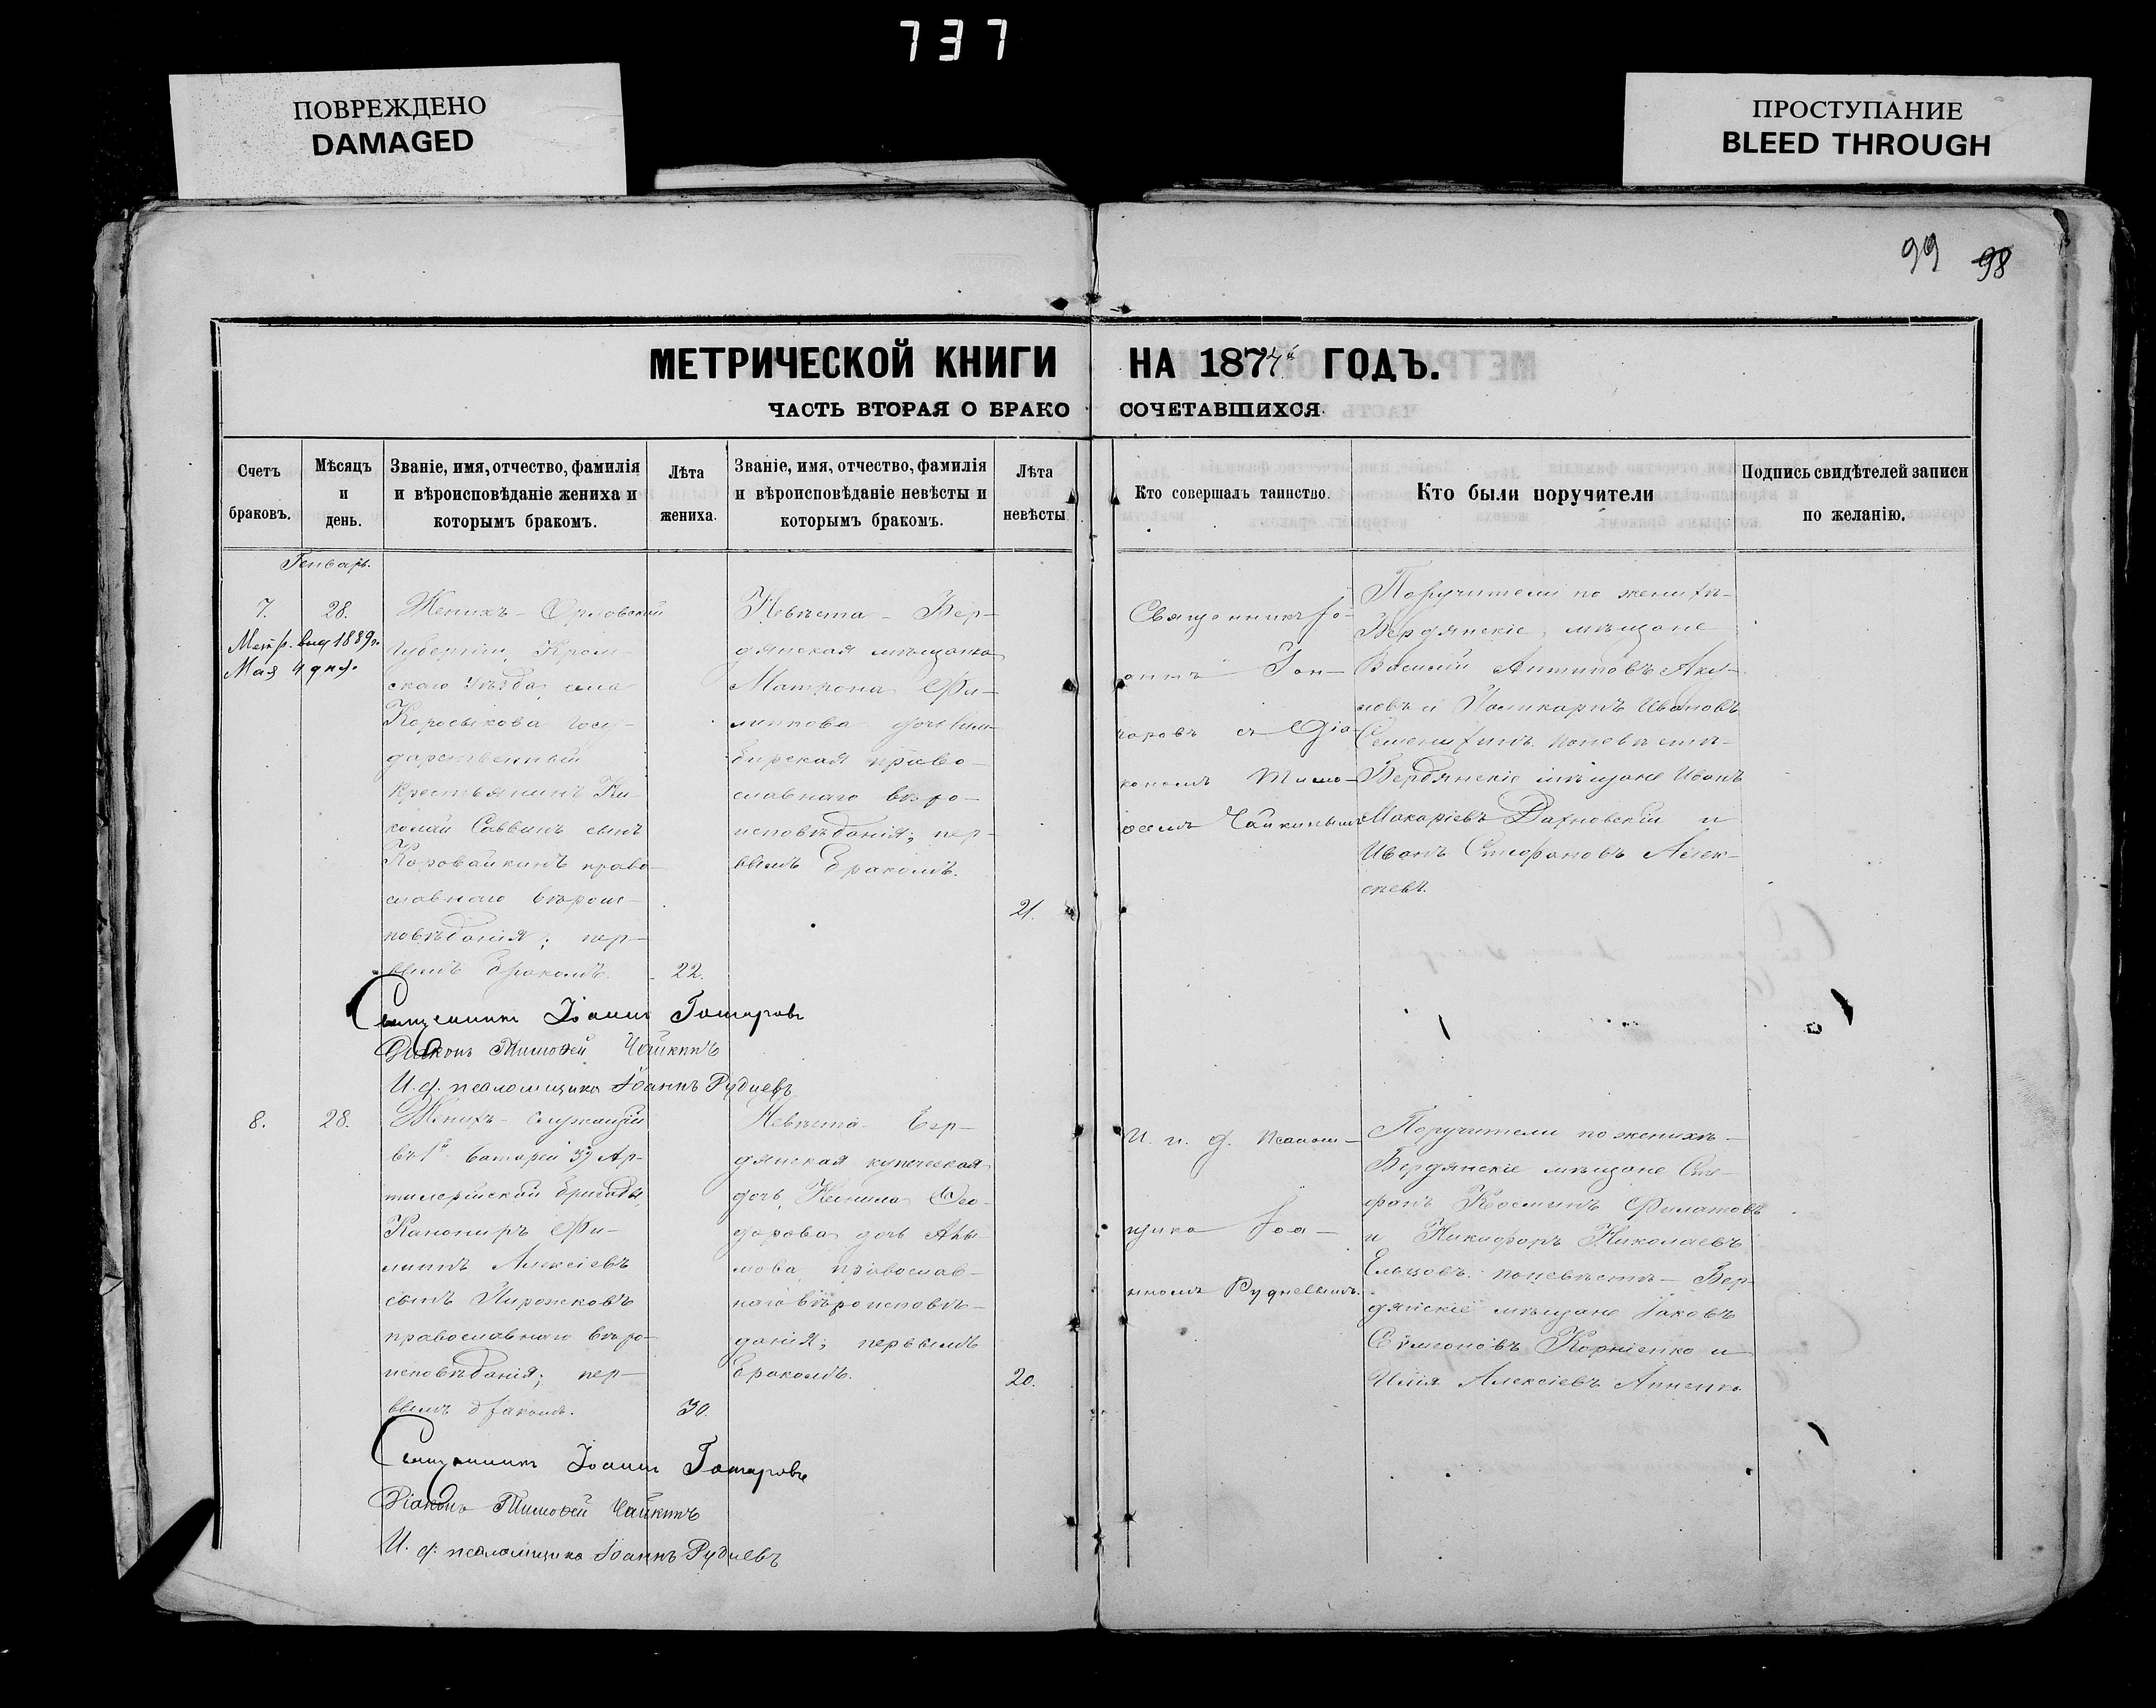 737
ПОВРЕЖДЕНО
DAMAGED
ПРОСТУПАНИЕ
BLEED THROUGH
99 98
МЕТРИЧЕСКОЙ КНИГИ НА 1874й ГОДЪ.
ЧАСТЬ ВТОРАЯ О БРАКО СОЧЕТАВШИХСЯ.
Счетъ
браковъ.
Мѣсяцъ
и
день.
Званіе, имя, отчество, фамилія
и вѣроисповѣданіе жениха и
которымъ бракомъ.
Лѣта
жениха.
Званіе, имя, отчество, фамилія
и вѣроисповѣданіе невѣсты и
которымъ бракомъ.
Лѣта
невѣсты
Кто совершалъ таинство.
Кто были поручители
Подпись свидѣтелей записи
по желанію.
Генварь.
7.
28.
Метр. выд 1889 г.
Мая 4 дня.
Женихъ - Орловской
губерніи, Кром-
скаго уѣзда, села
госу-
дарственный
крестьянинъ Ни-
колай Саввинъ сынъ
Коровайкинъ право-
славнаго вѣроис-
повѣданія; пер-
вымъ бракомъ.
22.
Невѣста - Бер-
дянская мѣщанка
Матрона Фи-
липпова дочь
право-
славнаго вѣро-
исповѣданія; пер-
вымъ бракомъ.
21.
Священникъ Іо-
аннъ Гон-
чаровъ съ Діа-
кономъ Тимо-
ѳеемъ Чайкинымъ
Поручители по женихѣ-
Бердянскіе мѣщане
Василій Антиповъ Аку-
ловъ и Поликарпъ Ивановъ
по невѣстѣ-
Бердянскіе мѣщане Иванъ
Макаріевъ и
Иванъ Стефановъ Алек-
сѣевъ.
Священникъ Іоаннъ Гончаровъ
Діаконъ Тимоѳей Чайкинъ
И. д. псаломщика Іоаннъ Рудневъ
8.
28.
Женихъ - служащій
въ 1й батареи 39 Ар-
тилерійской бригады,
Канониръ Фи-
липпъ Алексіевъ
сынъ Пирожковъ
православнаго вѣро-
исповѣданія; пер-
вымъ бракомъ.
30.
Невѣста - Бер-
дянская купеческая
дочь, Ѳео-
дорова дочь
православ-
наго вѣроисповѣ-
данія; первымъ
бракомъ.
20.
И. д. псалом-
щика Іоа-
нномъ Рудневымъ.
Поручители по женихѣ-
Бердянскіе мѣщане Сте-
фанъ Косминъ Филатовъ
и Никифоръ Николаевъ
Ельцовъ. по невѣстѣ - Бер-
дянскіе мѣщане Іаковъ
Сѵмеоновъ Корніенко и
Илія Алексіевъ Анненко
Священникъ Іоаннъ Гончаровъ
Діаконъ Тимоѳей Чайкинъ
И. д. псаломщика Іоаннъ Рудневъ